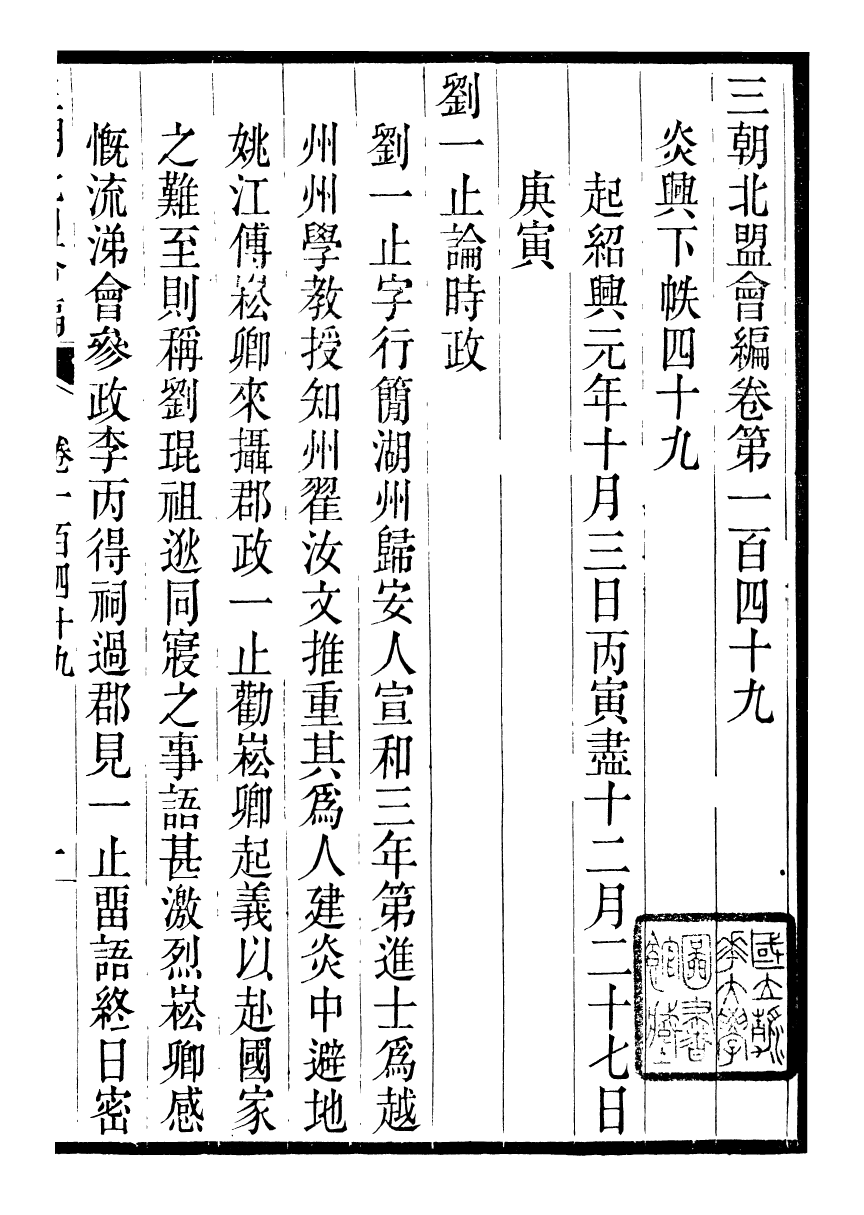 三朝北盟會編卷第一百四十九
炎興下帙四十九
起紹興元年十月三日丙寅盡十二月二十七日
庚寅
劉一止論時政
劉一止字行簡湖州歸安人宣和三年第進士爲越
州州學教授知州翟汝文推重其爲人建炎中避地
姚江傅崧卿來攝郡政一止勸崧卿起義以赴國家
之難至則稱劉琨祖逖同寢之事語甚激烈崧卿感
慨流涕會參政李丙得祠過郡見一止畱語終日密
卷一百四十九
一
國立清華大學圖書館藏